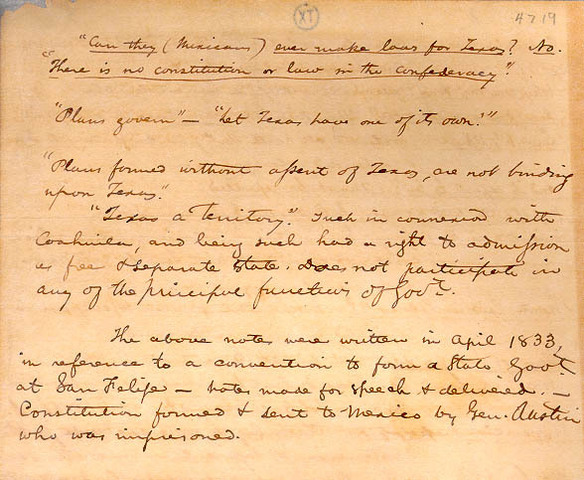 XI
4719
"Can they (Mexicans) ever make laws for Texas? No.
"There is no constitution or law in the confederacy".
"Plans govern" — "Let Texas have one of its own."
"Plans formed without assent of Texas, are not binding
upon Texas".
"Texas a Territory." Such in connexion with
Coahuila, and being such had a right to admission
as free & separate State. Does not participate in
any of the principal functions of Govt.
The above notes were written in April 1833,
in reference to a convention to form a State Govt
at San Felipe — notes made for speech & delivered. —
Constitution formed & sent to Mexico by Gen. Austin
who was imprisoned.